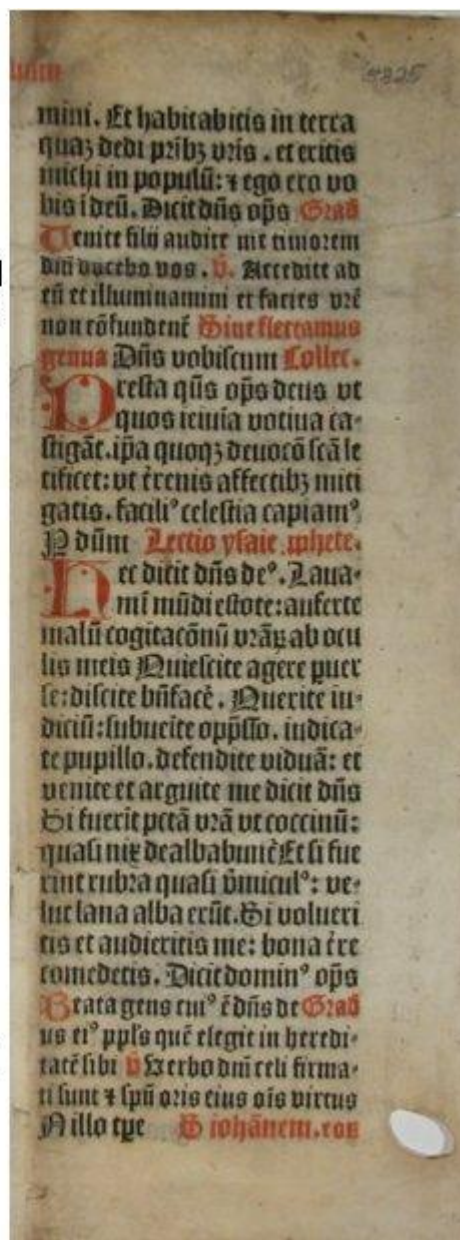 mini. Et habitabitis in terra
quaꝫ dedi pr̃ibꝫ vr̃is . et eritis
michi in populũ: ⁊ ego ero vo
bis i deũ. Dicit dñs op̃s Grad̃
Venite filij audite me timorem
dñi docebo vos . ℣. Accedite ad
eũ et illuminamini et facies vrẽ
non cõfundent̃ Sine flectamus
genua Dñs vobiscum Collec.
Presta qũs op̃s deus vt
quos ieiunia votiua ca-
stigãt. ip̃a quoqꝫ deuocõ scã le
tificet: vt t̃renis affectibꝫ miti
gatis. faciliꝰ celestia capiamꝰ
P dũm Lectio ysaie ꝓphete.
Hec dicit dñs deꝰ. Laua-
mĩ mũdi estote: auferte
malũ cogitacõnũ vr̃aꝝ ab ocu
lis meis Quiescite agere ꝑuer
se: discite bñfacẽ . Querite iu-
diciũ: subuẽite opp̃sso. iudica-
te pupillo. defendite viduã: et
venite et arguite me dicit dñs
Si fuerĩt pctã vr̃ã vt coccinũ:
quasi nix dealbabunt̃ Et si fue
rint rubra quasi v̾miculꝰ: ve-
lut lana alba erũt. Si volueri
tis et audieritis me: bona t̃re
comedetis. Dicit dominꝰ op̃s
Beata gens cuiꝰ ẽ dñs de Grad̃
us eiꝰ pp̃ls quẽ elegit in heredi-
tatẽ sibi ℣ Verbo dñi celi firma-
ti sunt ⁊ sp̃u oris eius oĩs virtus
N illo tp̃e S iohãnem.